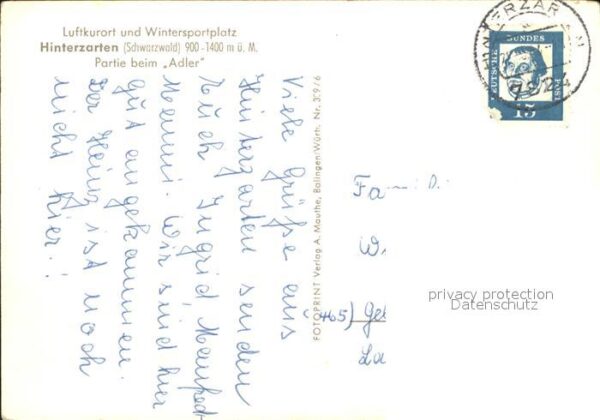 Luftkurort und Wintersportplatz
Hinterzarten (Schwarzwald) 900-1400 m ü. M.
Partie beim „Adler"
Viele Grüße aus
Hinterzarten senden
Euch Ingrid Manfred
Mammi. Wir sind hier
gut angekommen.
Der Heinz ist noch
nicht hier!
FOTOPRINT Verlag A. Mauthe, Balingen/Württ. Nr. 329/6
HINTERZARTEN
7824
DEUTSCHE BUNDESPOST
15
Fa
(465) Gel
La
privacy protection
Datenschutz